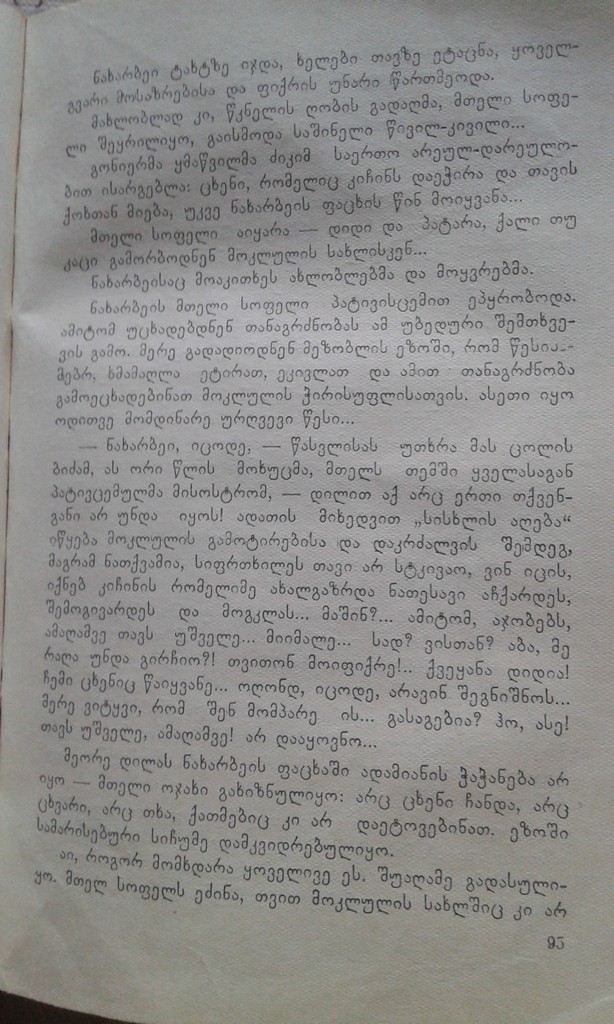 ნახარბეი ტახტზე იჯდა, ხელები თავზე ეტაცნა, ყოველ-
გვარი მოსაზრებისა და ფიქრის უნარი წართმეოდა.
მახლობლად კი, წკნელის ღობის გადაღმა, მთელი სოფე-
ლი შეყრილიყო, გაისმოდა საშინელი წივილ-კივილი...
გონიერმა ყმაწვილმა ძიკიმ საერთო არეულ-დარეულო-
ბით ისარგებლა: ცხენი, რომელიც კიჩინს დაეჭირა და თავის
ქოხთან მიება, უკვე ნახარბეის ფაცხის წინ მოიყვანა...
მთელი სოფელი აიყარა — დიდი და პატარა, ქალი თუ
კაცი გამორბოდნენ მოკლულის სახლისკენ...
ნახარბეისაც მოაკითხეს ახლობლებმა და მოყვრებმა.
ნახარბეის მთელი სოფელი პატივისცემით ეპყრობოდა.
ამიტომ უცხადებდნენ თანაგრძნობას ამ უბედური შემთხვე-
ვის გამო. მერე გადადიოდნენ მეზობლის ეზოში, რომ
მებრ, ხმამაღლა ეტირათ, ეკივლათ და ამით თანაგრძნობა
გამოეცხადებინათ მოკლულის ჭირისუფლისათვის. ასეთი იყო
ოდითვე მომდინარე ურღვევი წესი...
— ნახარბეი, იცოდე, — წასვლისას უთხრა მას ცოლის
ბიძამ, ას ორი წლის მოხუცმა, მთელს თემში ყველასაგან
პატივცემულმა მისოსტრომ, — დილით აქ არც ერთი თქვენ-
განი არ უნდა იყოს! ადათის მიხედვით „სისხლის აღება“
იწყება მოკლულის გამოტირებისა და დაკრძალვის შემდეგ,
მაგრამ ნათქვამია, სიფრთხილეს თავი არ სტკივაო, ვინ იცის,
იქნებ კიჩინის რომელიმე ახალგაზრდა ნათესავი აჩქარდეს,
შემოგივარდეს და მოგკლას... მაშინ?... ამიტომ, აჯობებს,
ამაღამვე თავს უშველე... მიიმალე... სად? ვისთან? აბა, მე
რაღა უნდა გირჩიო?! თვითონ მოიფიქრე!.. ქვეყანა დიდია!
ჩემი ცხენიც წაიყვანე... ოღონდ, იცოდე, არავინ შეგნიშნოს...
მერე ვიტყვი, რომ შენ მომპარე ის... გასაგებია? ჰო, ასე!
თავს უშველე, ამაღამვე! არ დააყოვნო...
მეორე დილას ნახარბეის ფაცხაში ადამიანის ჭაჭანება არ
იყო — მთელი ოჯახი გახიზნულიყო: არც ცხენი ჩანდა, არც
ცხვარი, არც თხა, ქათმებიც კი არ დაეტოვებინათ. ეზოში
სამარისებური სიჩუმე დამკვიდრებულიყო.
აი, როგორ მომხდარა ყოველივე ეს. შუაღამე გადასული-
ყო. მთელ სოფელს ეძინა, თვით მოკლულის სახლშიც კი არ
95